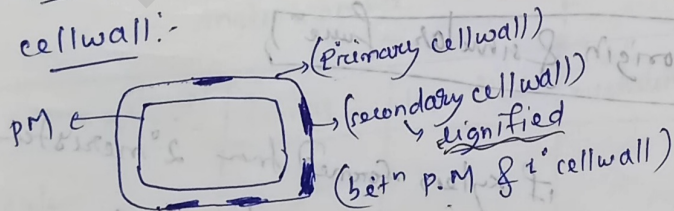 cellwall:-
(Primary cellwall)
PM
(secondary cellwall)
lignified
(betⁿ P.M & 1° cellwall)